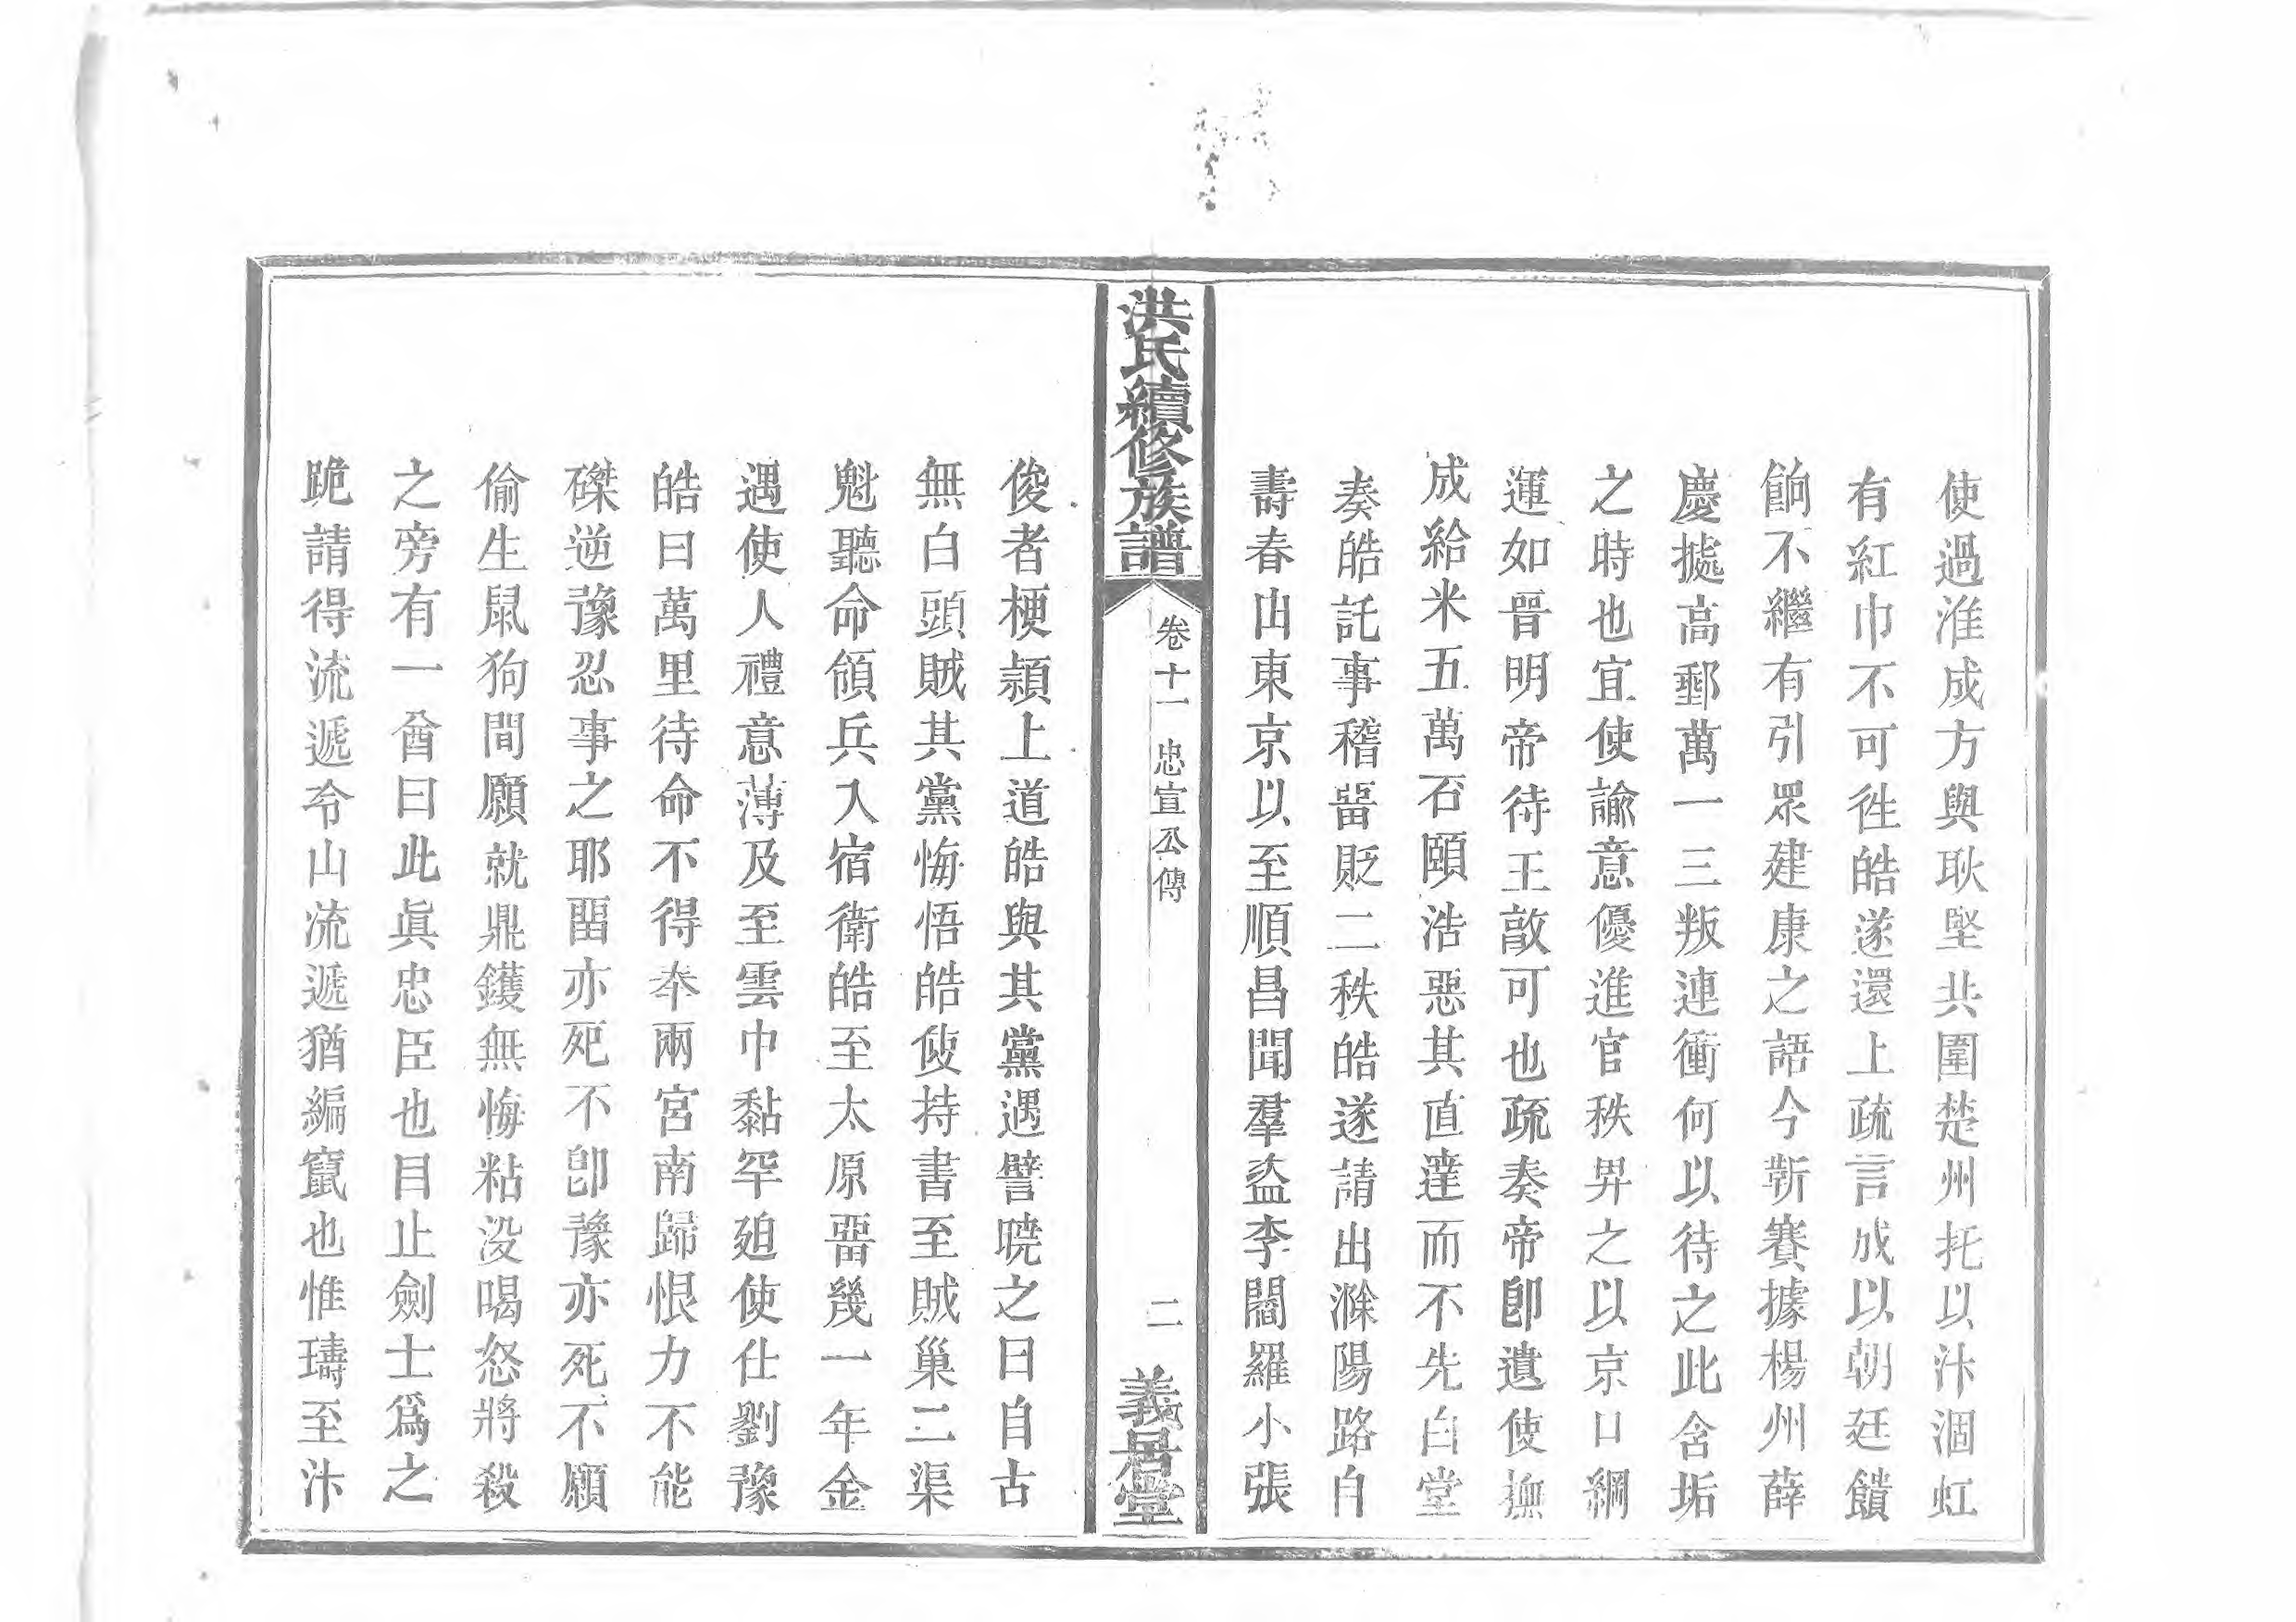 使過淮成方與耿堅共圍楚州托以汴涸虹
有紅巾不可徃皓遂還上疏言成以朝廷饋
餉不繼有引眾建康之語今靳賽據楊州薛
慶㨿高郵萬一三叛連衝何以待之此含垢
之時也宜使諭意優進官秩畀之以京口綱
運如晉明帝待王敦可也疏奏帝卽遣使撫
成給米五萬石頤浩惡其直達而不先白堂
奏皓託事稽畱貶二秩皓遂請出滁陽路自
壽春由東京以至順昌聞羣盜李閻羅小張
洪氏續修族譜
卷十一 忠宣公傳
二
義居堂
俊者梗潁上道皓與其黨遇譬曉之曰自古
無白頭賊其黨悔悟皓使持書至賊巢二渠
魁聽命領兵入宿衛皓至太原畱幾一年金
遇使人禮意薄及至雲中黏罕廹使仕劉豫
皓曰萬里待命不得奉兩宮南歸恨力不能
磔逆豫忍事之耶畱亦死不卽豫亦死不願
偷生鼠狗間願就鼎鑊無悔粘没喝怒將殺
之旁有一酋曰此眞忠臣也目止劍士爲之
跪請得流遞冷山流遞猶編竄也惟璹至汴